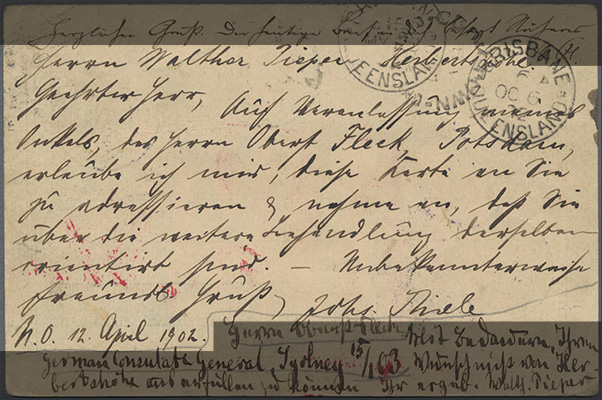 Herzlichen Gruß. Der heutige
Herrn Walther Pieper Herbertshöhe
Geehrter Herr,
Auf Veranlassung meines
Onkels, des Herrn Oberst Fleck, Potsdam,
erlaube ich mir, diese Karte an Sie
zu adressieren & nehme an, daß Sie
über die weitere Behandlung derselben
orientirt sind. — Unbekannterweise
freundl. Gruß, Johs. Thiele
N.O. 12. April 1902.
Herrn Oberst Fleck
Mit Bedauern, Ihren
German Consulate General Sydney 15/1 03
Wunsch nicht von Her-
bertshöhe aus erfüllen zu können
Ihr ergeb. Walth. Pieper
BRISBANE
OC 6
QUEENSLAND
QUEENSLAND